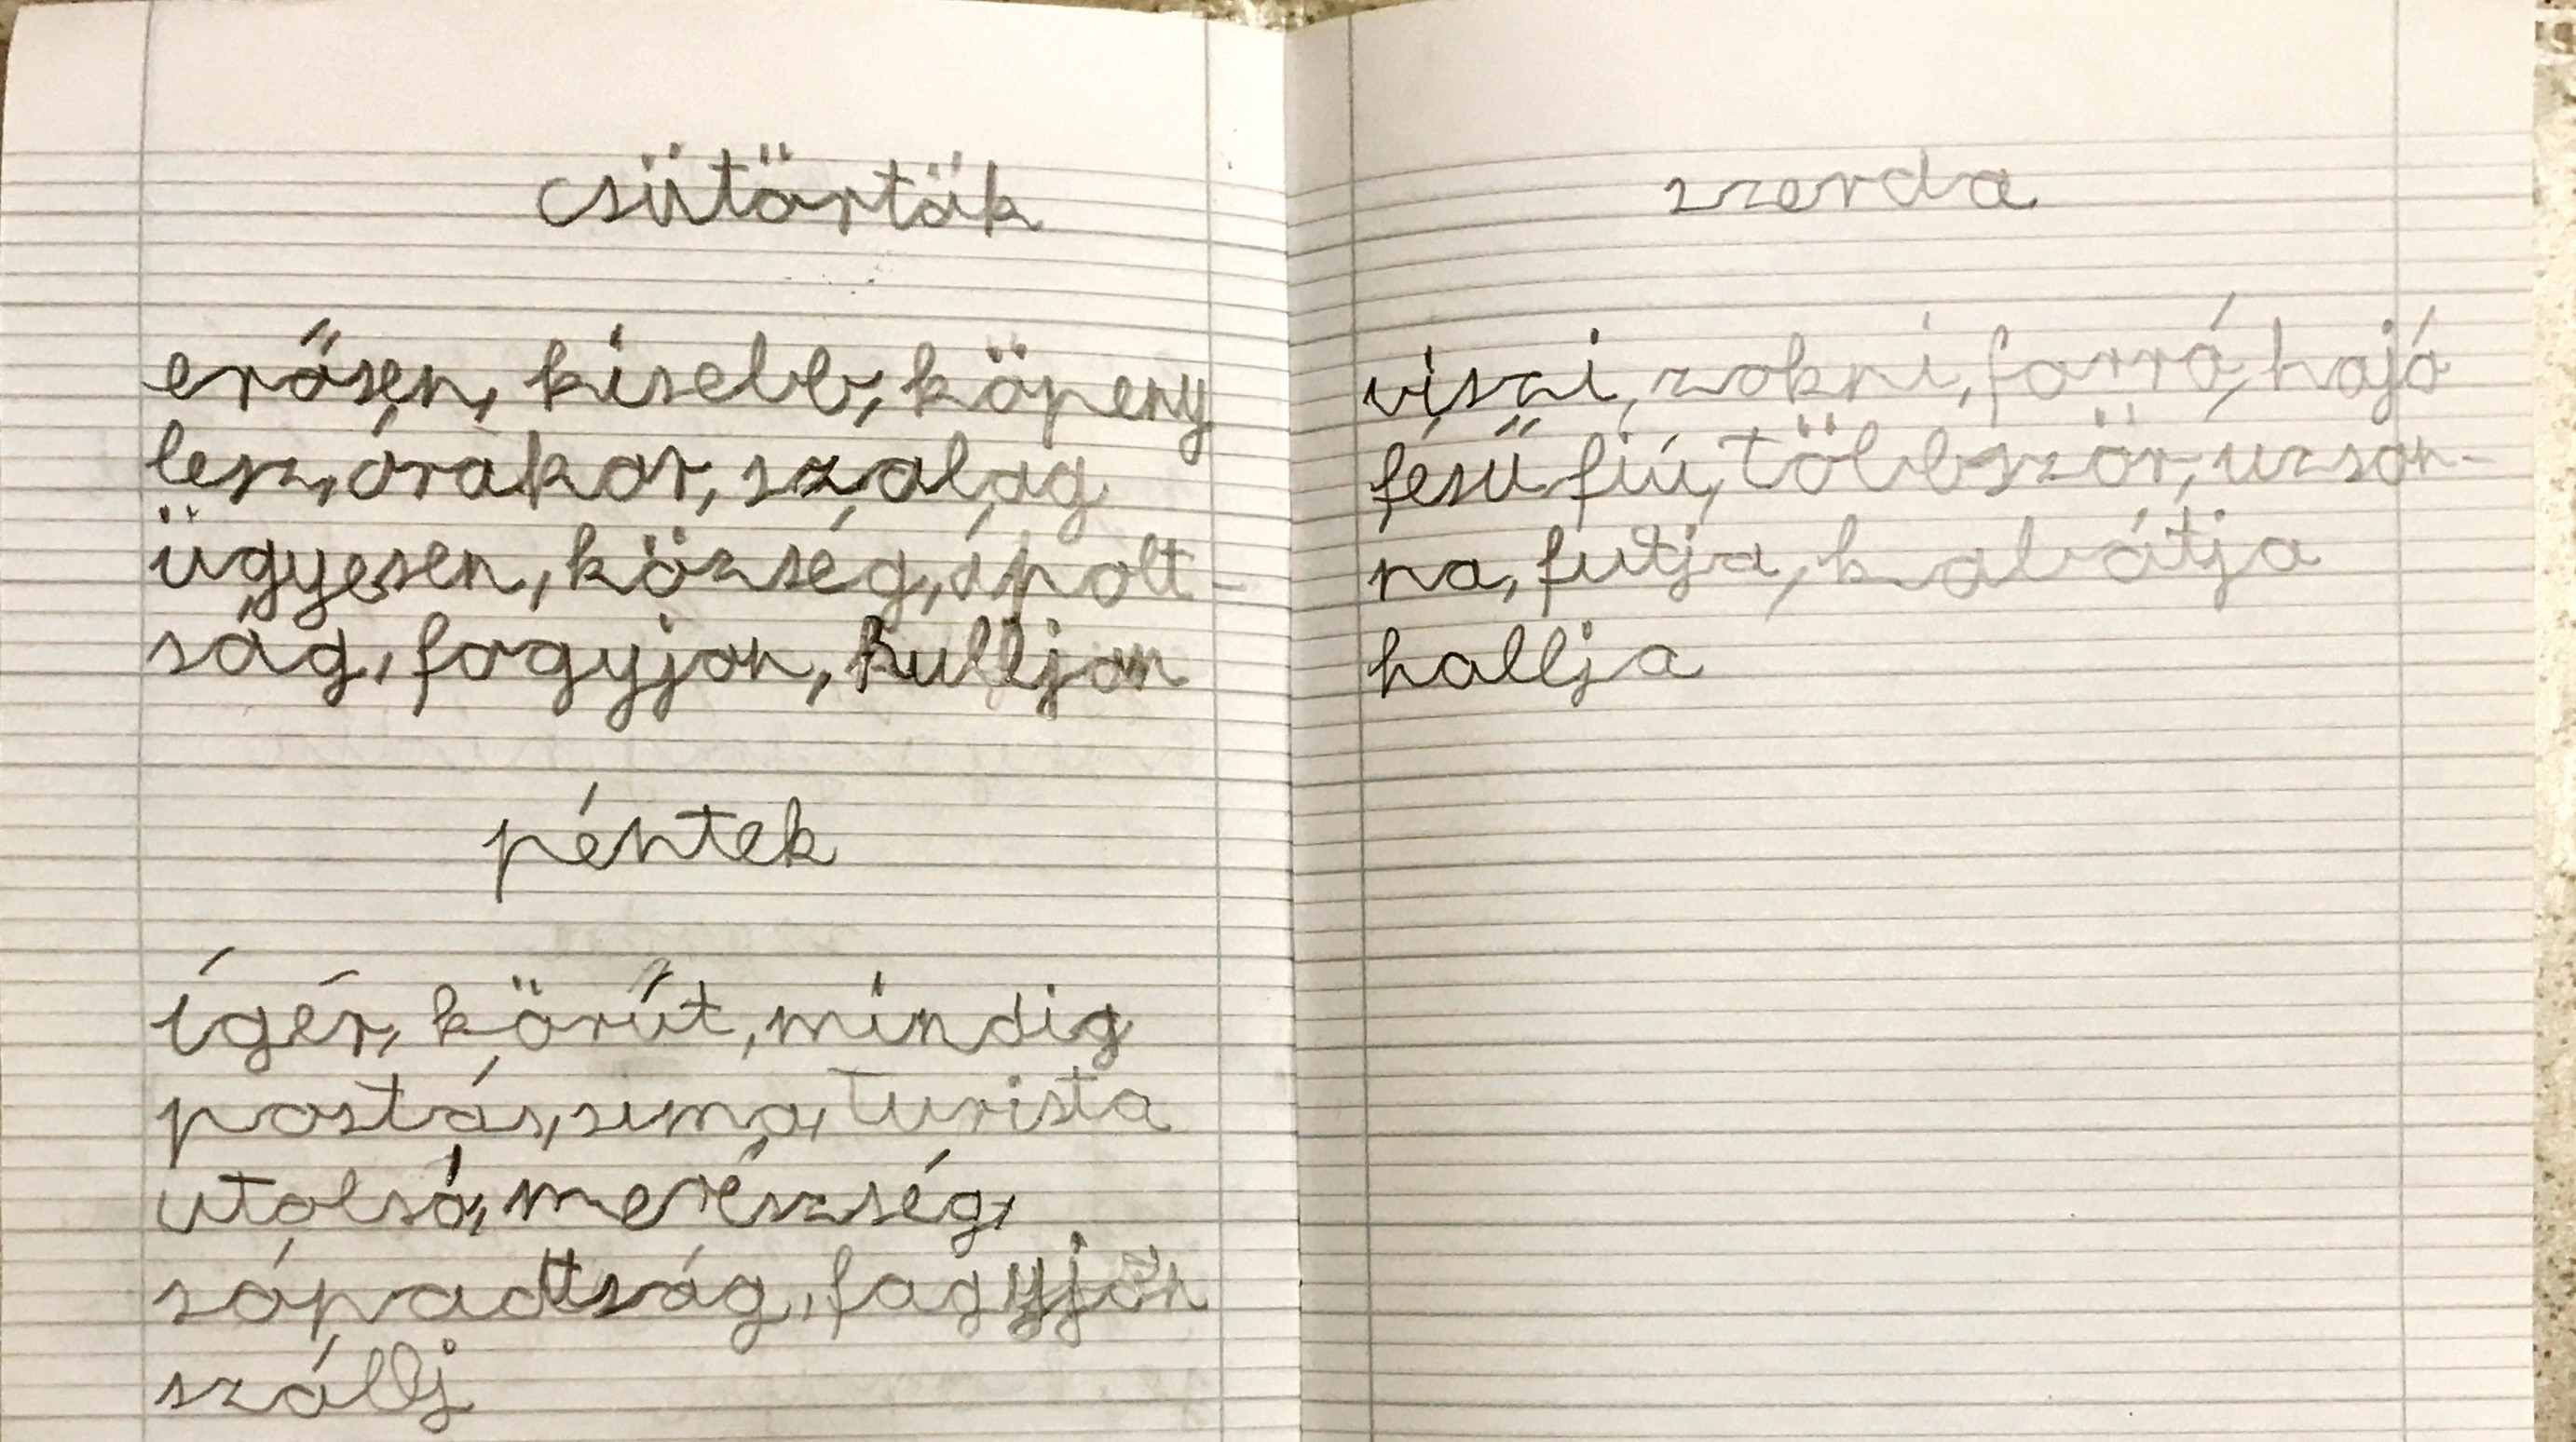 csütörtök
erősen, kisebb, köpeny
lesz, órakor, szalag
ügyesen, község, ápolt-
ság, fogyjon, hulljon
péntek
ígér, körút, mindig
postás, sima, turista
utolsó, merészség,
sápadtság, fagyjon
szállj
szerda
viszi, zokni, forró, hajó
fésű fiú, többször, uzson-
na, futja, kabátja
hallja